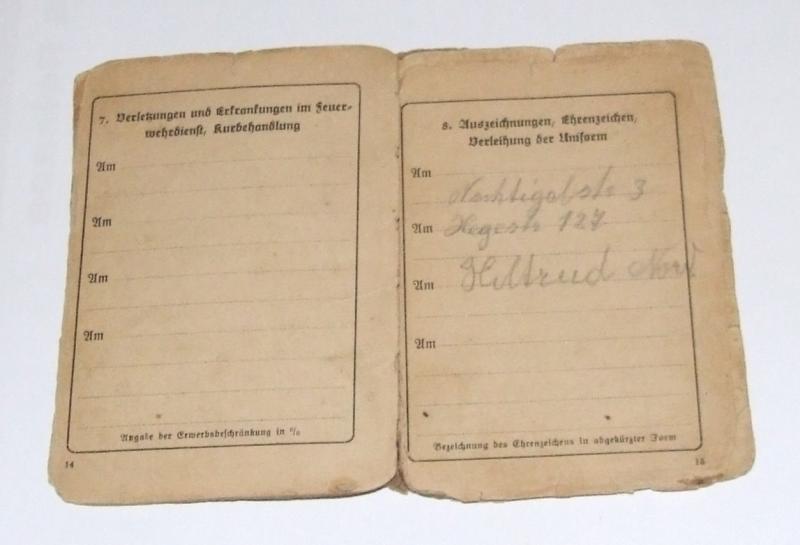 7. Verletzungen und Erkrankungen im Feuer-
wehrdienst, Kurbehandlung
Am
Am
Am
Am
Angabe der Erwerbsbeschränkung in %
14
8. Auszeichnungen, Ehrenzeichen,
Verleihung der Uniform
Am
Nachtigalstr 3
Am
Hegestr 127
Am
Hiltrud
Am
Bezeichnung des Ehrenzeichens in abgekürzter Form
15